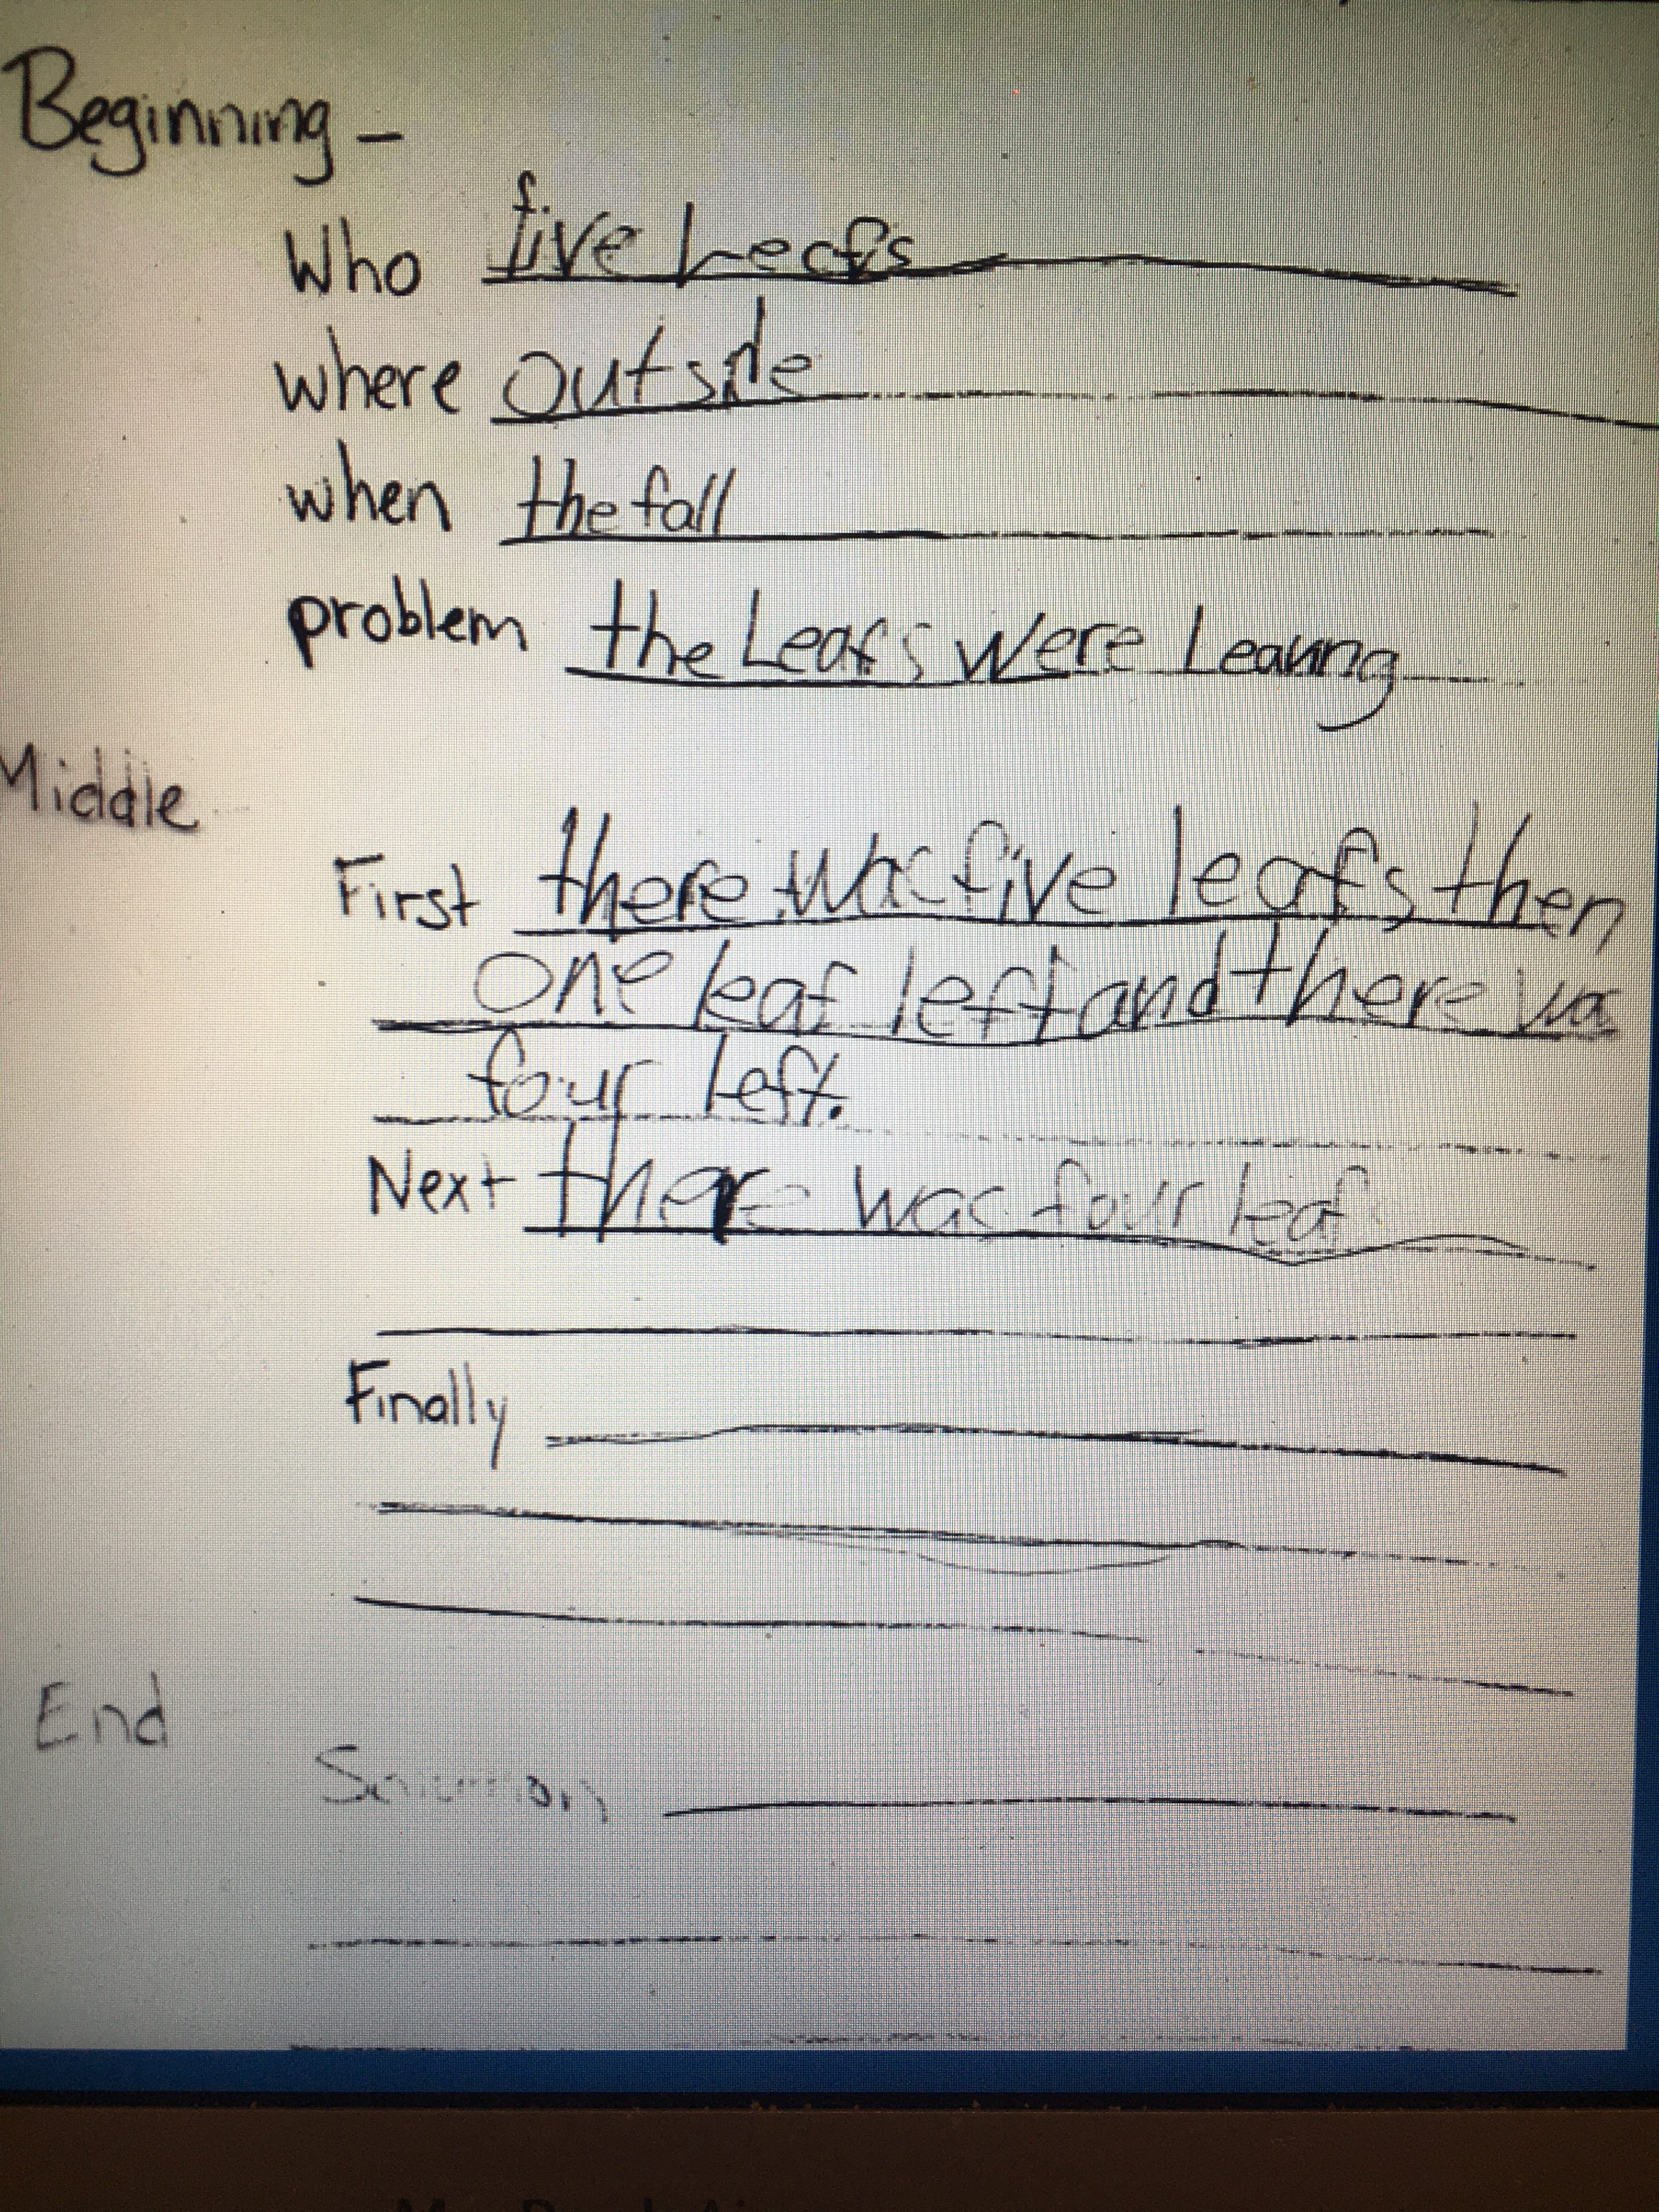 Beginning -
Who five Leafs
where outside
when the fall
problem the Leafs were Leaving
Middle
First there was five leafs then
one leaf left and there wa
four left.
Next there was four leaf
Finally
End
Solution